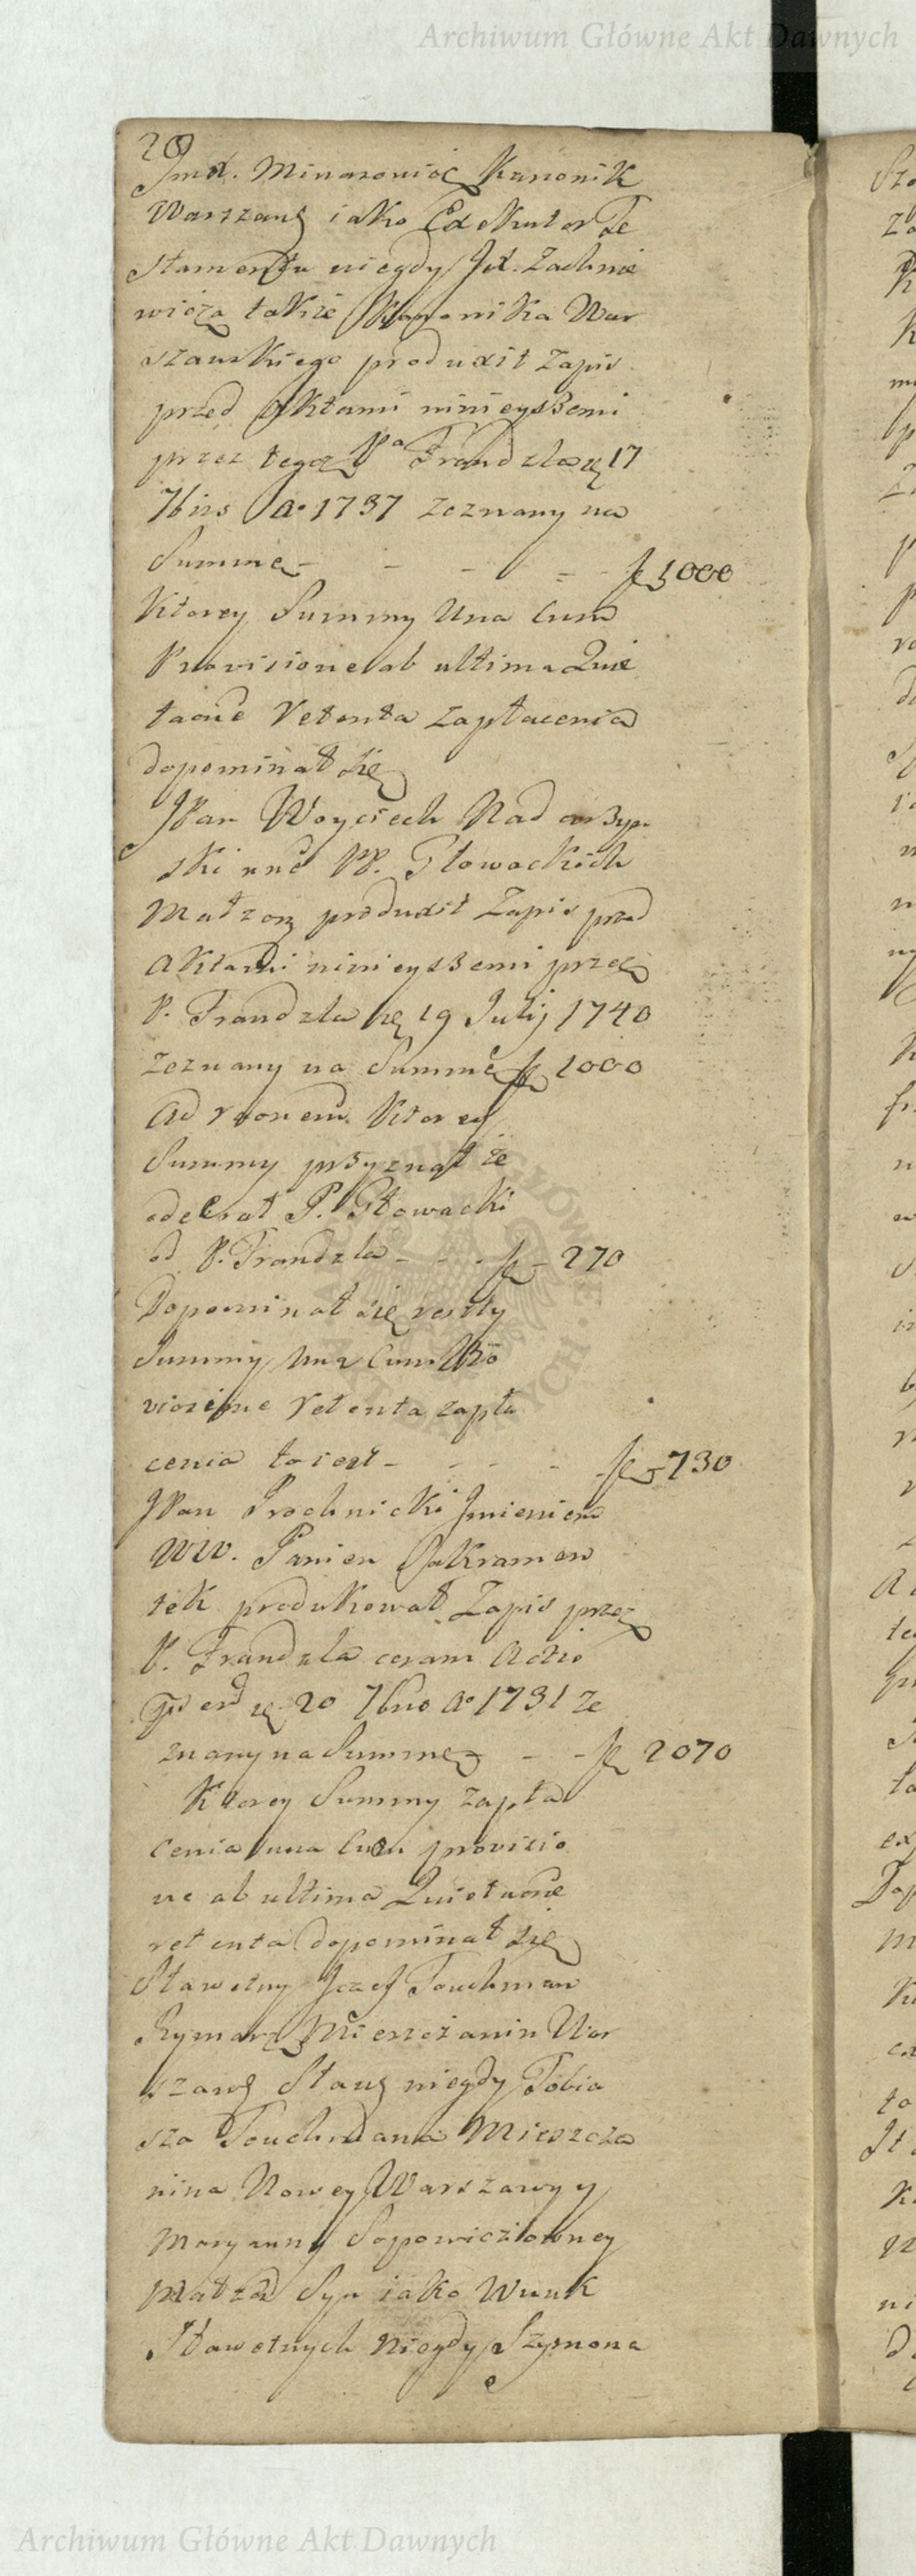 Archiwum Główne Akt Dawnych
20
JmX. Minasowicz Kanonik
Warszawſ iako Exekutor Te
stamentu niegdy JX. Zachnie
wicza także Kanonika War
szawskiego produxit Zapis
przed Aktami ninieyszemi
przez tegoż Pa Frandzla 17
7bris Ao 1737 zeznany na
Summę - - - - f 1000
Ktorey Summy Una Cum
Provisione ab ultima Quie
taone retenta zapłacenia
dopominał się
JPan Woyciech Nad
ski nne PP. Głowackich
Małzon produxit Zapis przed
Aktami ninieyszemi przez
P. Frandzla 19 Julij 1740
zeznany na Summę f 1000
Ad raonem Ktorey
Summy przyznał że
odebrał P. Głowacki
od P. Frandzla - - - f - 270
Dopominał się reszty
Summy una Cum Pro
visione retenta zapła
cenia to iest - - - - f 730
JPan Prochnicki Jmieniem
WW. Panien Sakramen
tek produkował Zapis przez
P. Frandzla coram Actis
20 7bris Ao 1731 ze
znany na Summę - - f 2070
Ktorey Summy zapła
cenia una Cum provisio
ne ab ultima Quietaone
retenta dopominał się
Sławetny Jozef Touchman
Rymarz Mieszczanin War
szawſ Sławſ niegdy Tobia
sza Touchmana Mieszcza
nina Nowey Warszawy y
Maryanny Sopowiczowney
Małżon Syn iako Wnuk
Sławetnych Niegdy Szymona
Archiwum Główne Akt Dawnych